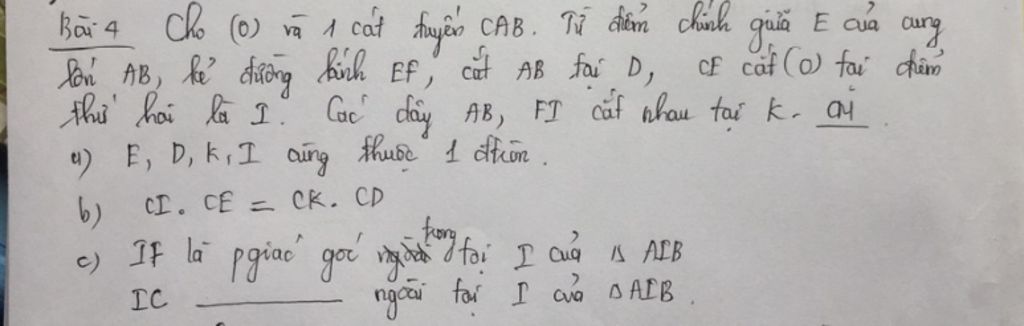 Bài 4 Cho (O) và 1 cát tuyến CAB. Từ điểm chính giữa E của cung
lớn AB, kẻ đường kính EF, cắt AB tại D, CE cắt (O) tại điểm
thứ hai là I. Các dây AB, FI cắt nhau tại K. CM
a) E, D, K, I cùng thuộc 1 đtròn.
b) CI. CE = CK. CD
c) IF là pgiác góc trong tại I của Δ AIB
IC ________ ngoài tại I của Δ AIB.